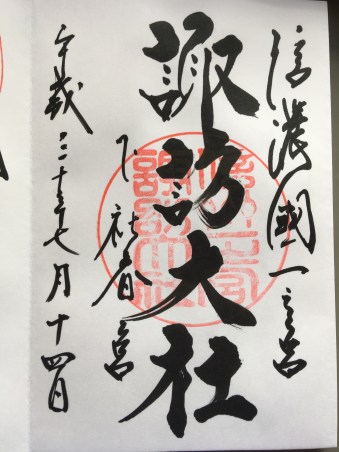 信濃國一之宮
諏訪大社
下社春宮
平成三十年七月十四日